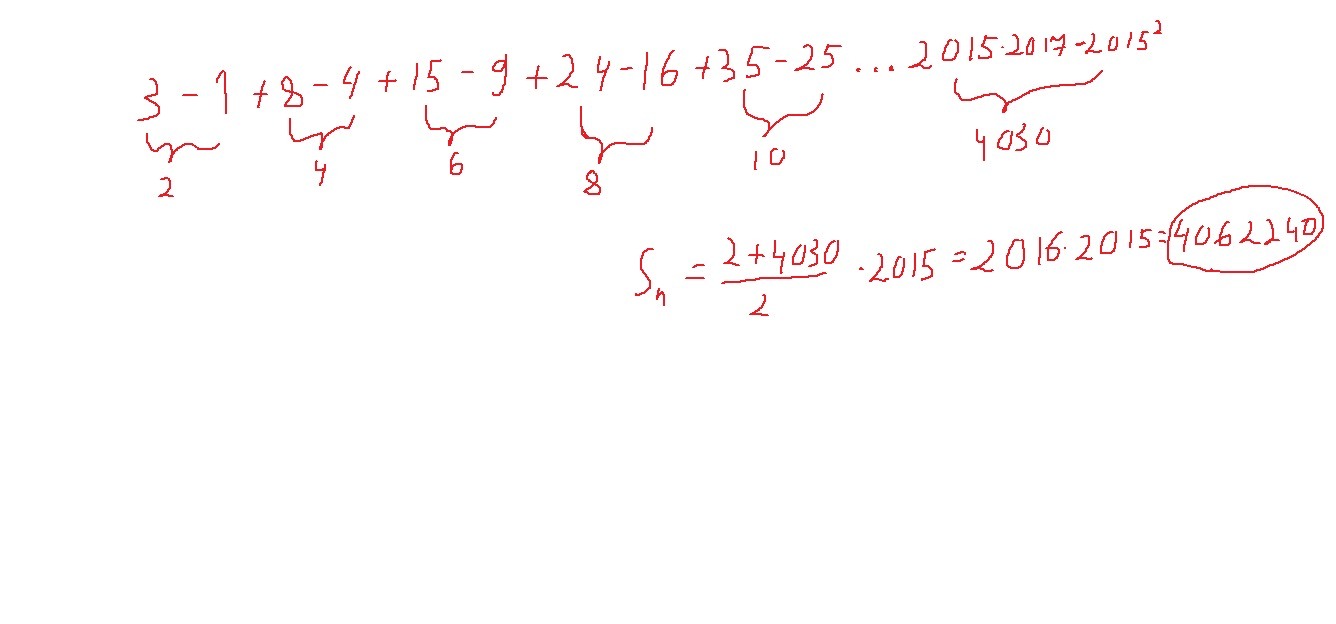 3 - 1 + 8 - 4 + 15 - 9 + 24 - 16 + 35 - 25 ... 2015·2017 - 2015²
2 4 6 8 10 4030
Sₙ = (2+4030)/2 · 2015 = 2016·2015 = 4062240